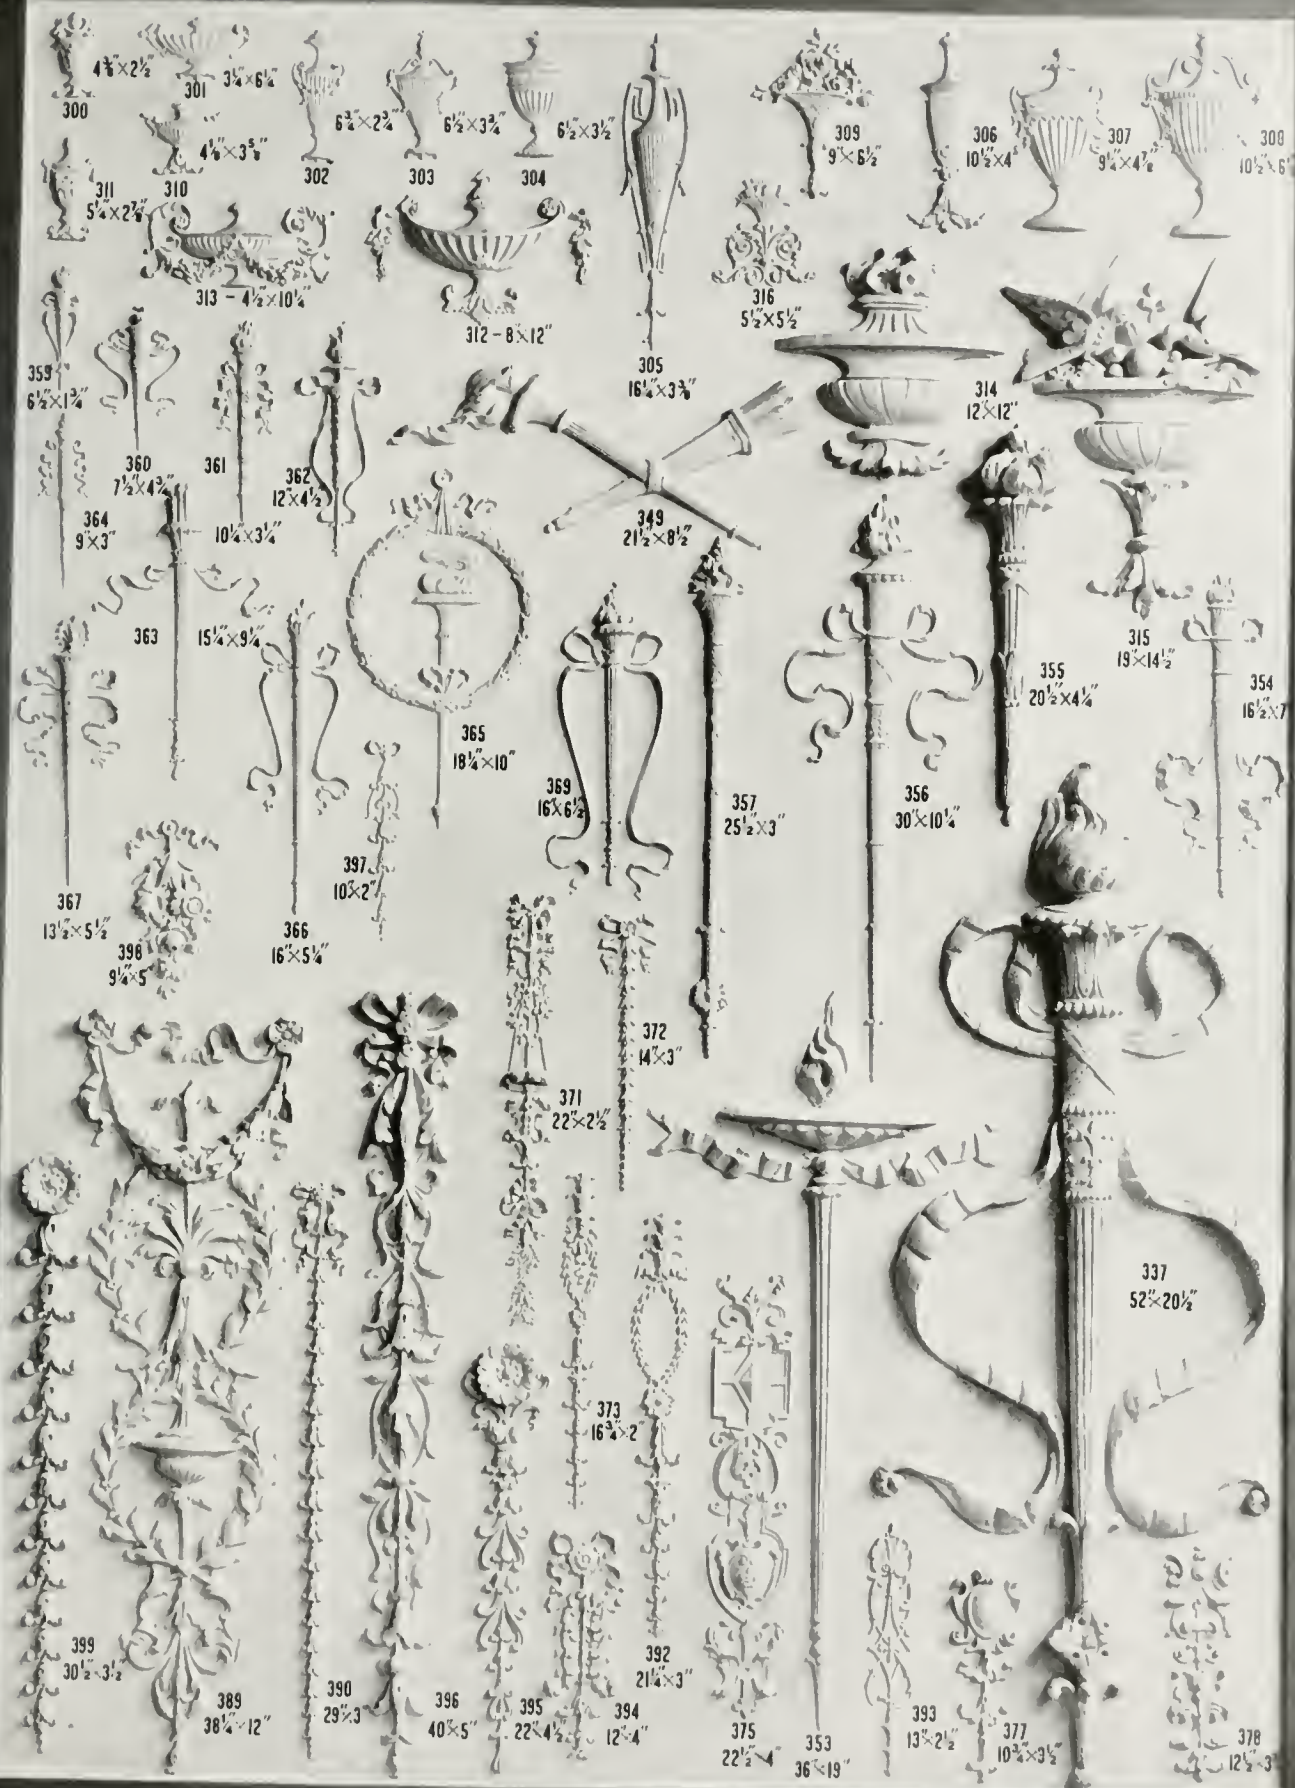 300
4⅜"×2½"
301
3¼"×6¼"
302
6¾"×2¾"
303
6½"×3¾"
304
6½"×3½"
309
9"×6½"
306
10½"×4"
307
9¼"×4⅞"
308
10½"×6
311
5¼"×2⅞"
310
4⅛"×3⅝"
313 - 4½"×10¼"
312 - 8"×12"
305
16¼"×3⅜"
316
5½"×5½"
314
12"×12"
359
6½"×1¾"
360
7½"×4¾"
361
10¼"×3¼"
362
12"×4½
364
9"×3"
363
15¼"×9¼"
349
21½"×8½"
315
19"×14½"
355
20½"×4¼"
354
16½"×7
365
18¼"×10"
369
16"×6½
357
25½"×3"
356
30"×10¼"
367
13½"×5½"
366
16"×5¼"
397
10"×2"
398
9¼"×5"
372
14"×3"
371
22"×2½"
337
52"×20½"
373
16¾"×2"
399
30½"×3½
389
38¼"×12"
390
29"×3"
396
40"×5"
395
22"×4½
394
12"×4"
392
21¼"×3"
375
22½"×4"
353
36"×19"
393
13"×2½"
377
10¾"×3½"
378
12½"×3